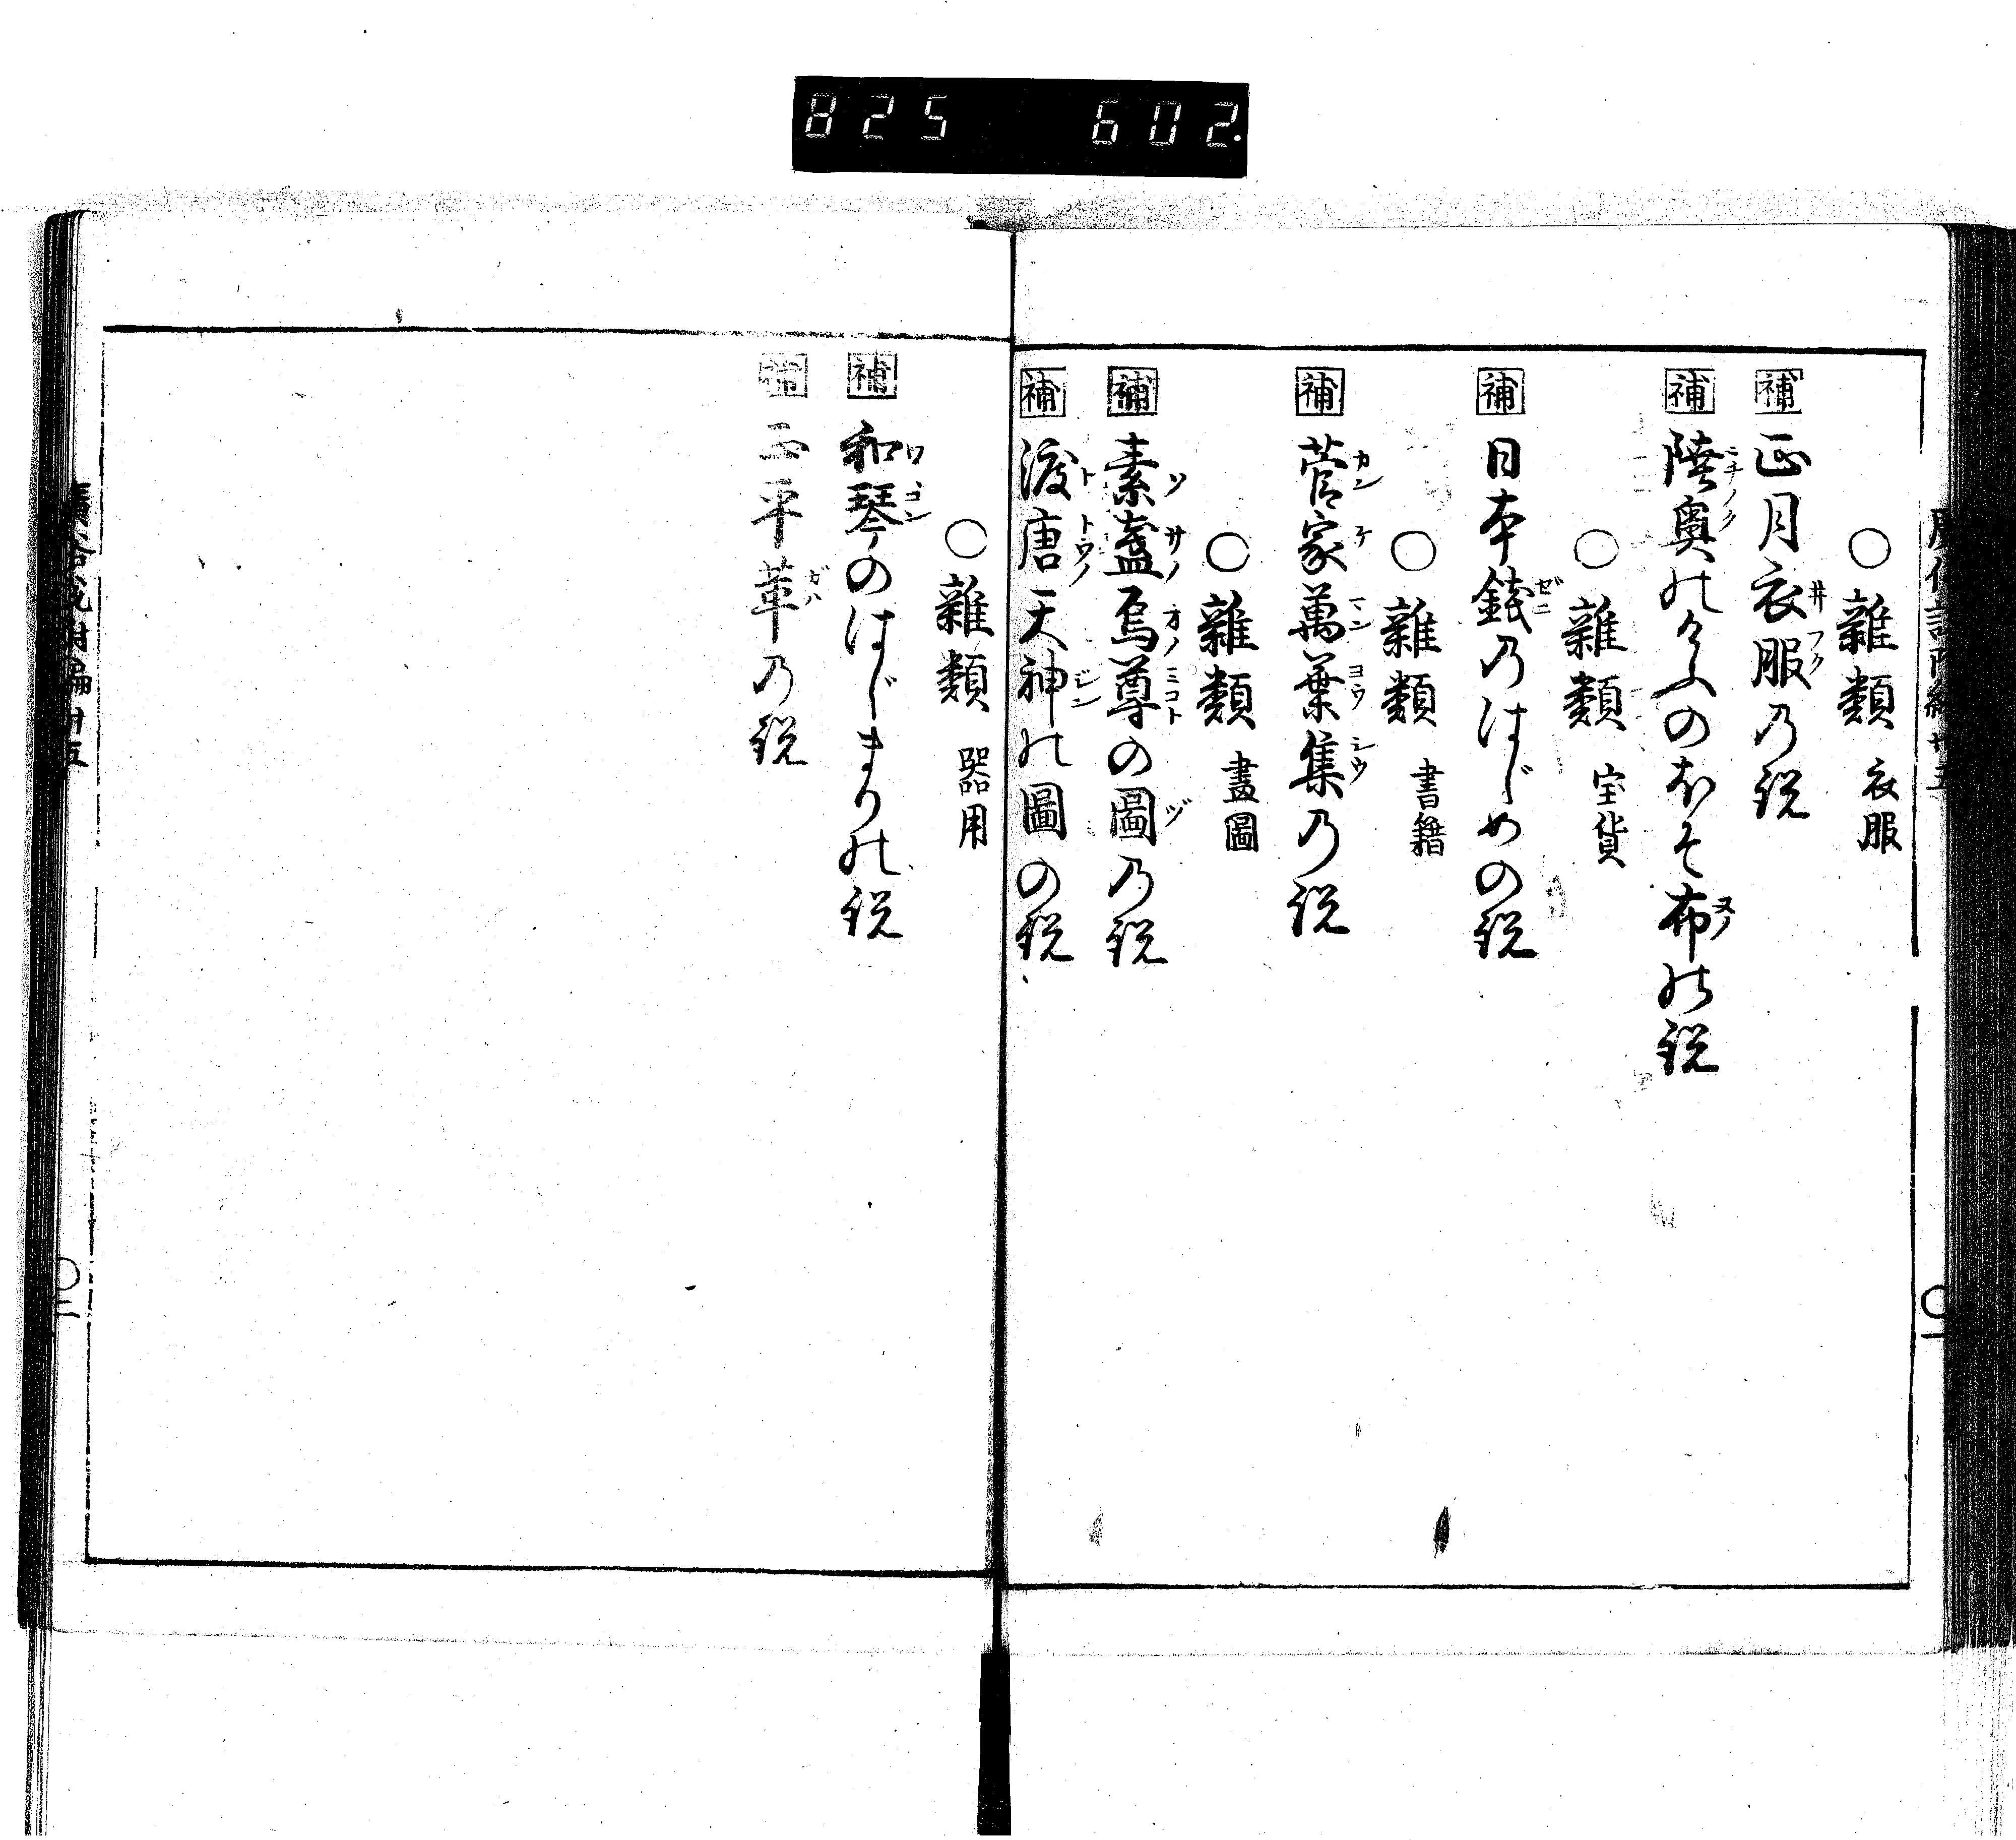 825 602
○雜類 衣服
補 正月衣服乃説
補 陸奥のけふのほそ布の説
○雜類 宝貨
補 日本錢乃はじめの説
○雜類 書籍
補 菅家萬葉集乃説
○雜類 畫圖
補 素盞烏尊の圖乃説
補 渡唐天神の圖の説
○雜類 器用
補 和琴のはじまりの説
補 正平革乃説